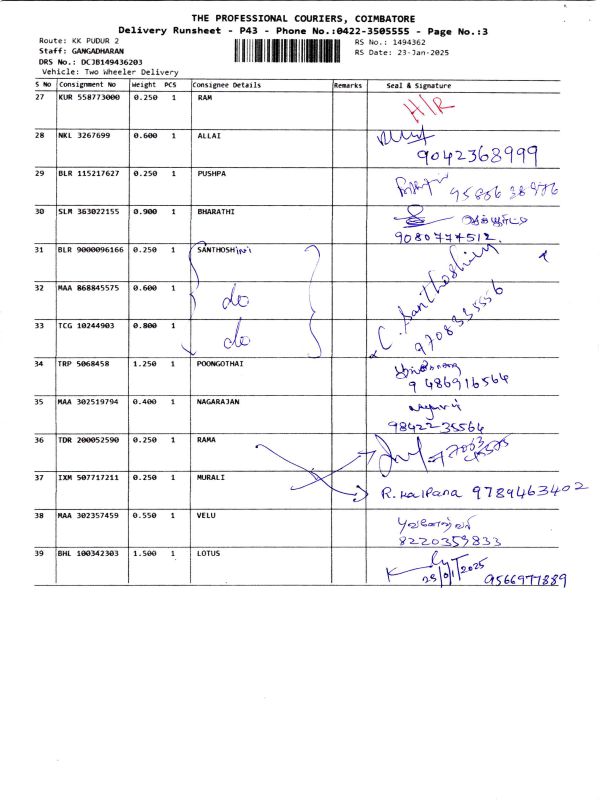 THE PROFESSIONAL COURIERS, COIMBATORE
Delivery Runsheet - P43 - Phone No.:0422-3505555 - Page No.:3
Route: KK PUDUR 2 RS No.: 1494362
Staff: GANGADHARAN RS Date: 23-Jan-2025
DRS No.: DCJB149436203
Vehicle: Two Wheeler Delivery
S No Consignment No Weight PCS Consignee Details Remarks Seal & Signature
27 KUR 558773000 0.250 1 RAM H/R
28 NKL 3267699 0.600 1 ALLAI
9042368999
29 BLR 115217627 0.250 1 PUSHPA
30 SLM 363022155 0.900 1 BHARATHI
9080774512.
31 BLR 9000096166 0.250 1 SANTHOSHini
32 MAA 868845575 0.600 1 do C. Santhoshiny
9708335556
33 TCG 10244903 0.800 1 do
34 TRP 5068458 1.250 1 POONGOTHAI
9486916564
35 MAA 302519794 0.400 1 NAGARAJAN
9842235564
36 TDR 200052590 0.250 1 RAMA
37 IXM 507717211 0.250 1 MURALI R. Kalpana 9789463402
38 MAA 302357459 0.550 1 VELU
8220359833
39 BHL 100342303 1.500 1 LOTUS
25/01/2025 9566977889